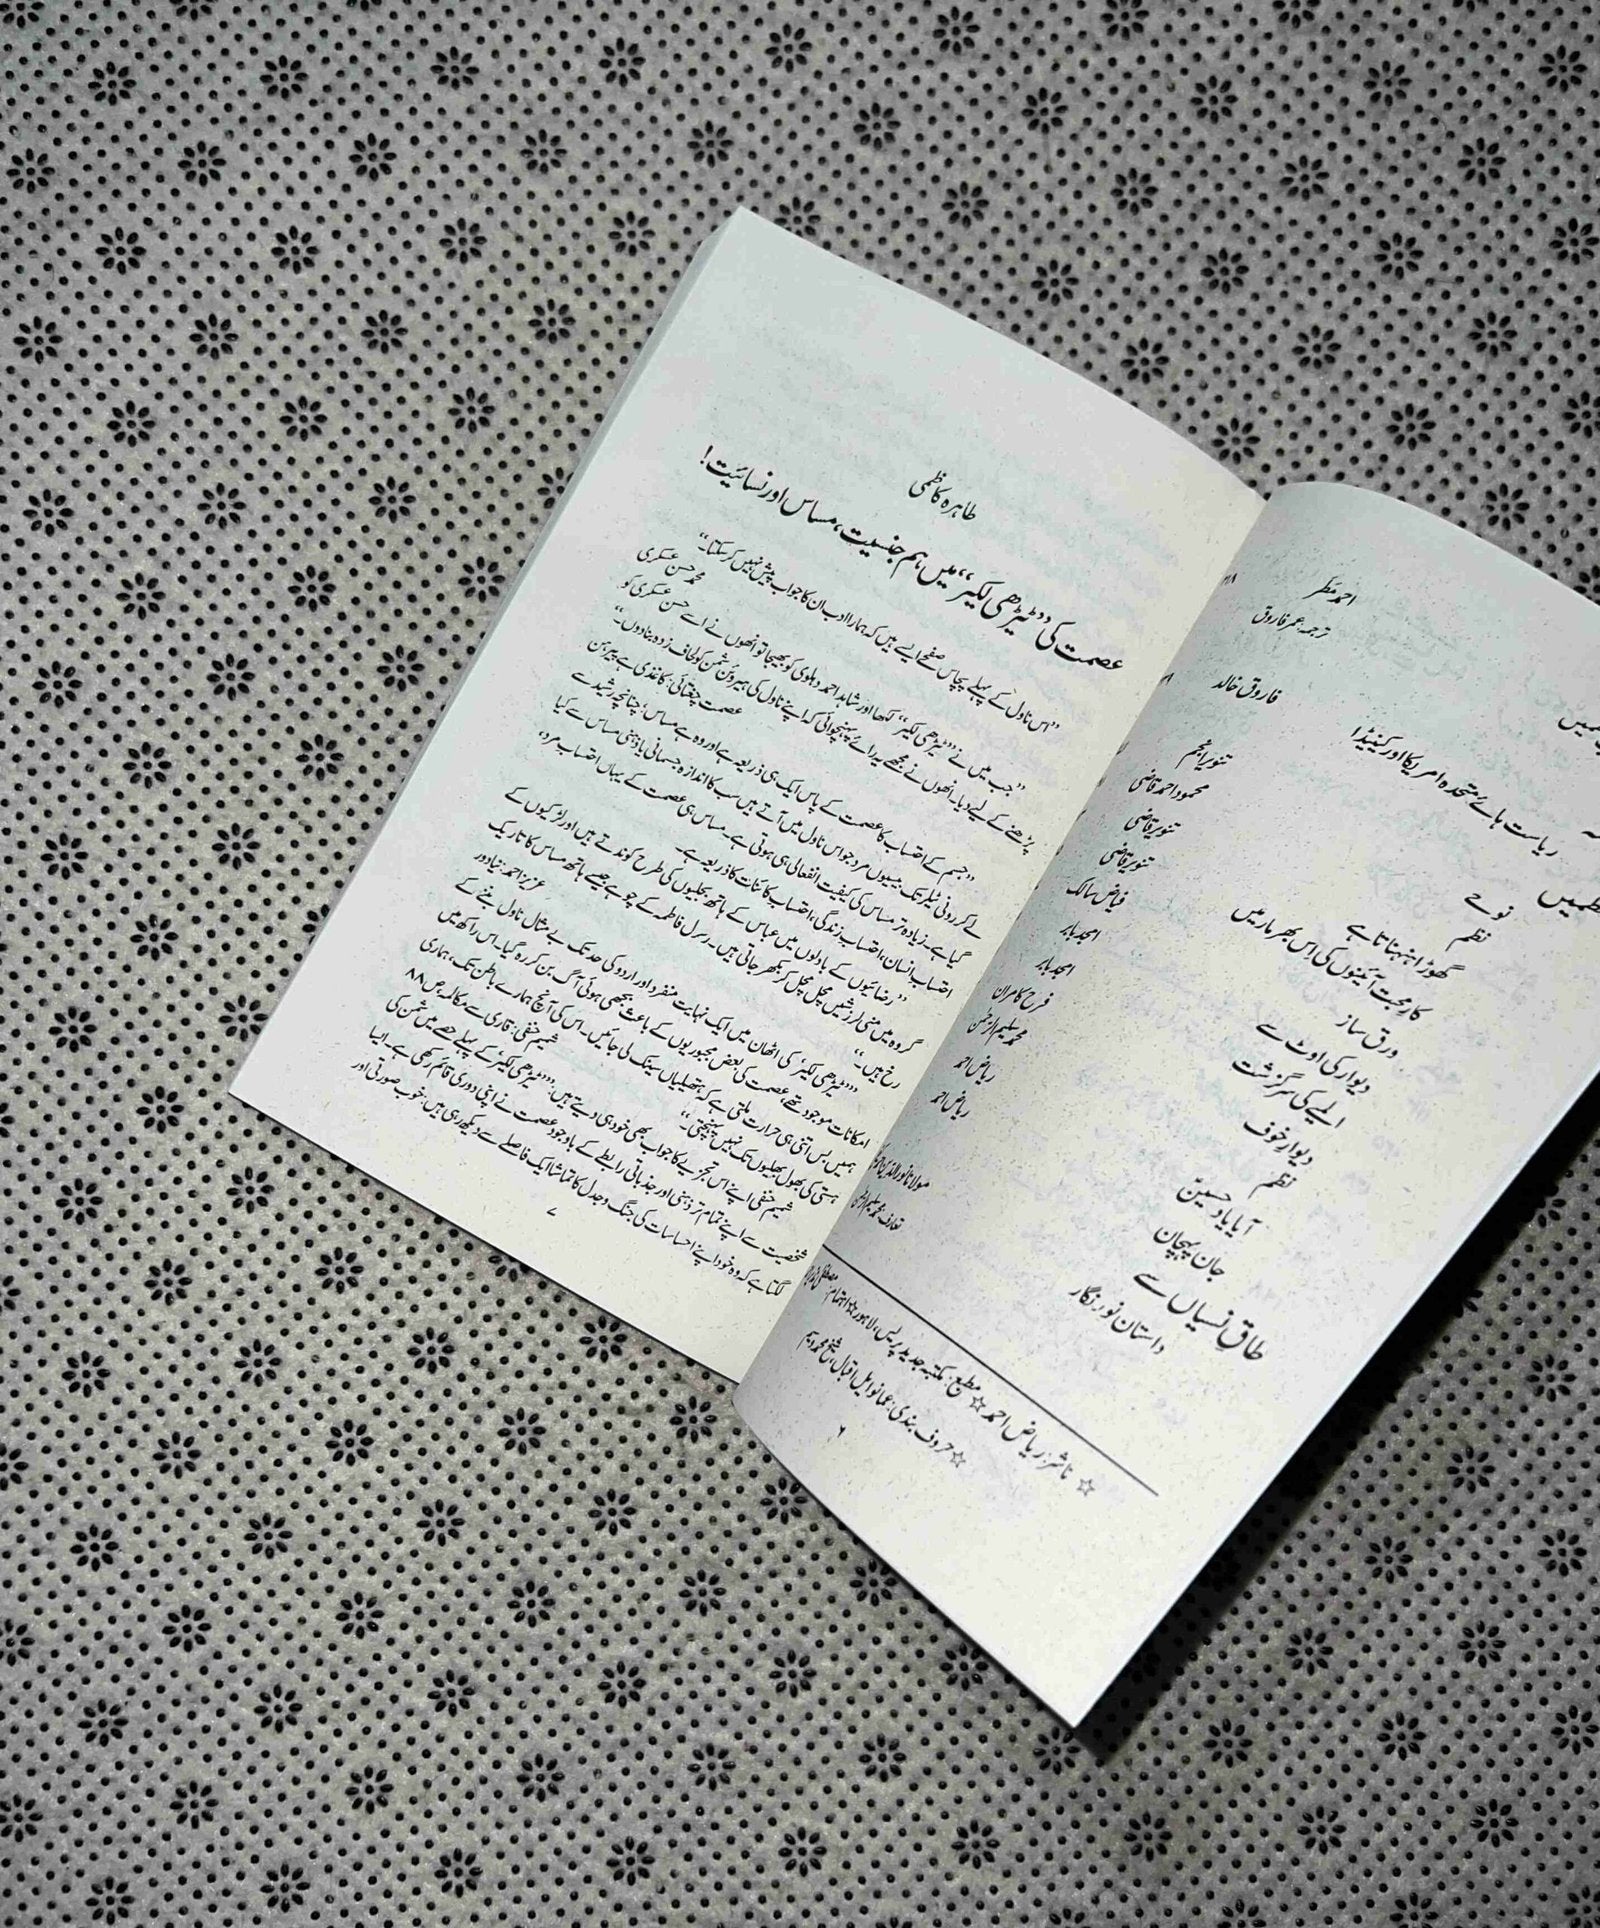 احمد مطر
ترجمہ: عمر فاروق
فاروق خالد
ریاست ہائے متحدہ امریکا اور کینیڈا
تنویر انجم
نوحے
محمود احمد قاضی
نظم
تنویر قاضی
گھوڑا ہنہناتا ہے
تنویر قاضی
کارِ محبت آئینوں کی اِس بھرمار میں
فیاض سالک
ورق ساز
امجد بابر
دیوار کی اوٹ سے
امجد بابر
ایلے کی سرگزشت
فرح کامران
دیوارِ خوف
محمد سلیم الرحمٰن
نظم
ریاض احمد
آیا یاد حسینؑ
ریاض احمد
جان پہچان
طاقِ نسیاں سے
داستان نور نگار
☆ ناشر: ریاض احمد ☆ مطبع: مکتبہ جدید پریس، لاہور ☆ اہتمام:
☆ حروف بندی: عمانوایل اقبال، شیخ محمد وسیم
۶
طاہرہ کاظمی
عصمت کی ”ٹیڑھی لکیر“ میں ہم جنسیت، مساس اور نسائیت!
”اس ناول کے پہلے پچاس صفحے ایسے ہیں کہ ہمارا ادب ان کا جواب پیش نہیں کر سکتا۔“
محمد حسن عسکری
”جب میں نے ”ٹیڑھی لکیر“ لکھا اور شاہد احمد دہلوی کو بھیجا تو انھوں نے اسے حسن عسکری کو
پڑھنے کے لیے دیا۔ انھوں نے مجھے یہ رائے پہنچوائی کہ اپنے ناول کی ہیروئن شمن کو لحاف زدہ بنا دوں۔“
عصمت چغتائی: کاغذی ہے پیرہن
”جسم کے احتساب کا عصمت کے پاس ایک ہی ذریعہ ہے اور وہ ہے مساس؛ چنانچہ رشید سے
لے کر رونی ٹیلر تک بیسیوں مرد جو اس ناول میں آتے ہیں سب کا اندازہ جسمانی یا ذہنی مساس سے کیا
گیا ہے۔ زیادہ تر مساس کی کیفیت انفعالی ہی ہوتی ہے۔ مساس ہی عصمت کے یہاں احتسابِ مرد،
احتسابِ انسان، احتسابِ زندگی، احتسابِ کائنات کا ذریعہ ہے۔
”رضائیوں کے بادلوں میں عباس کے ہاتھ بجلیوں کی طرح کوندتے ہیں اور لڑکیوں کے
گروہ میں منی لرزشیں مچل مچل کر بکھر جاتی ہیں۔ رسول فاطمہ کے چوہے جیسے ہاتھ مساس کا تاریک
رخ ہیں۔“
عزیز احمد: نیا دور
””ٹیڑھی لکیر“ کی اٹھان میں ایک نہایت منفرد اور اردو کی حد تک بے مثال ناول بننے کے
امکانات موجود تھے، عصمت کی بعض مجبوریوں کے باعث بجھی ہوئی آگ بن کر رہ گیا۔ اس راکھ میں
ہمیں بس اتنی ہی حرارت ملتی ہے کہ ہتھیلیاں سینک لی جائیں۔ اس کی آنچ ہمارے باطن تک، ہماری
ہستی کی بھول بھلیوں تک نہیں پہنچتی۔“
شمیم حنفی: قاری سے مکالمہ، ص ۸۸
شمیم حنفی اپنے اس تجزیے کا جواب بھی خود ہی دیتے ہیں: ””ٹیڑھی لکیر“ کے پہلے حصے میں شمن کی
شخصیت سے اپنے تمام تر ذہنی اور جذباتی رابطے کے باوجود عصمت نے اپنی دوری قائم رکھی ہے۔ ایسا
لگتا ہے کہ وہ خود اپنے احساسات کی جنگ و جدل کا تماشا ایک فاصلے سے دیکھ رہی ہیں؛ خوب صورتی اور
۷